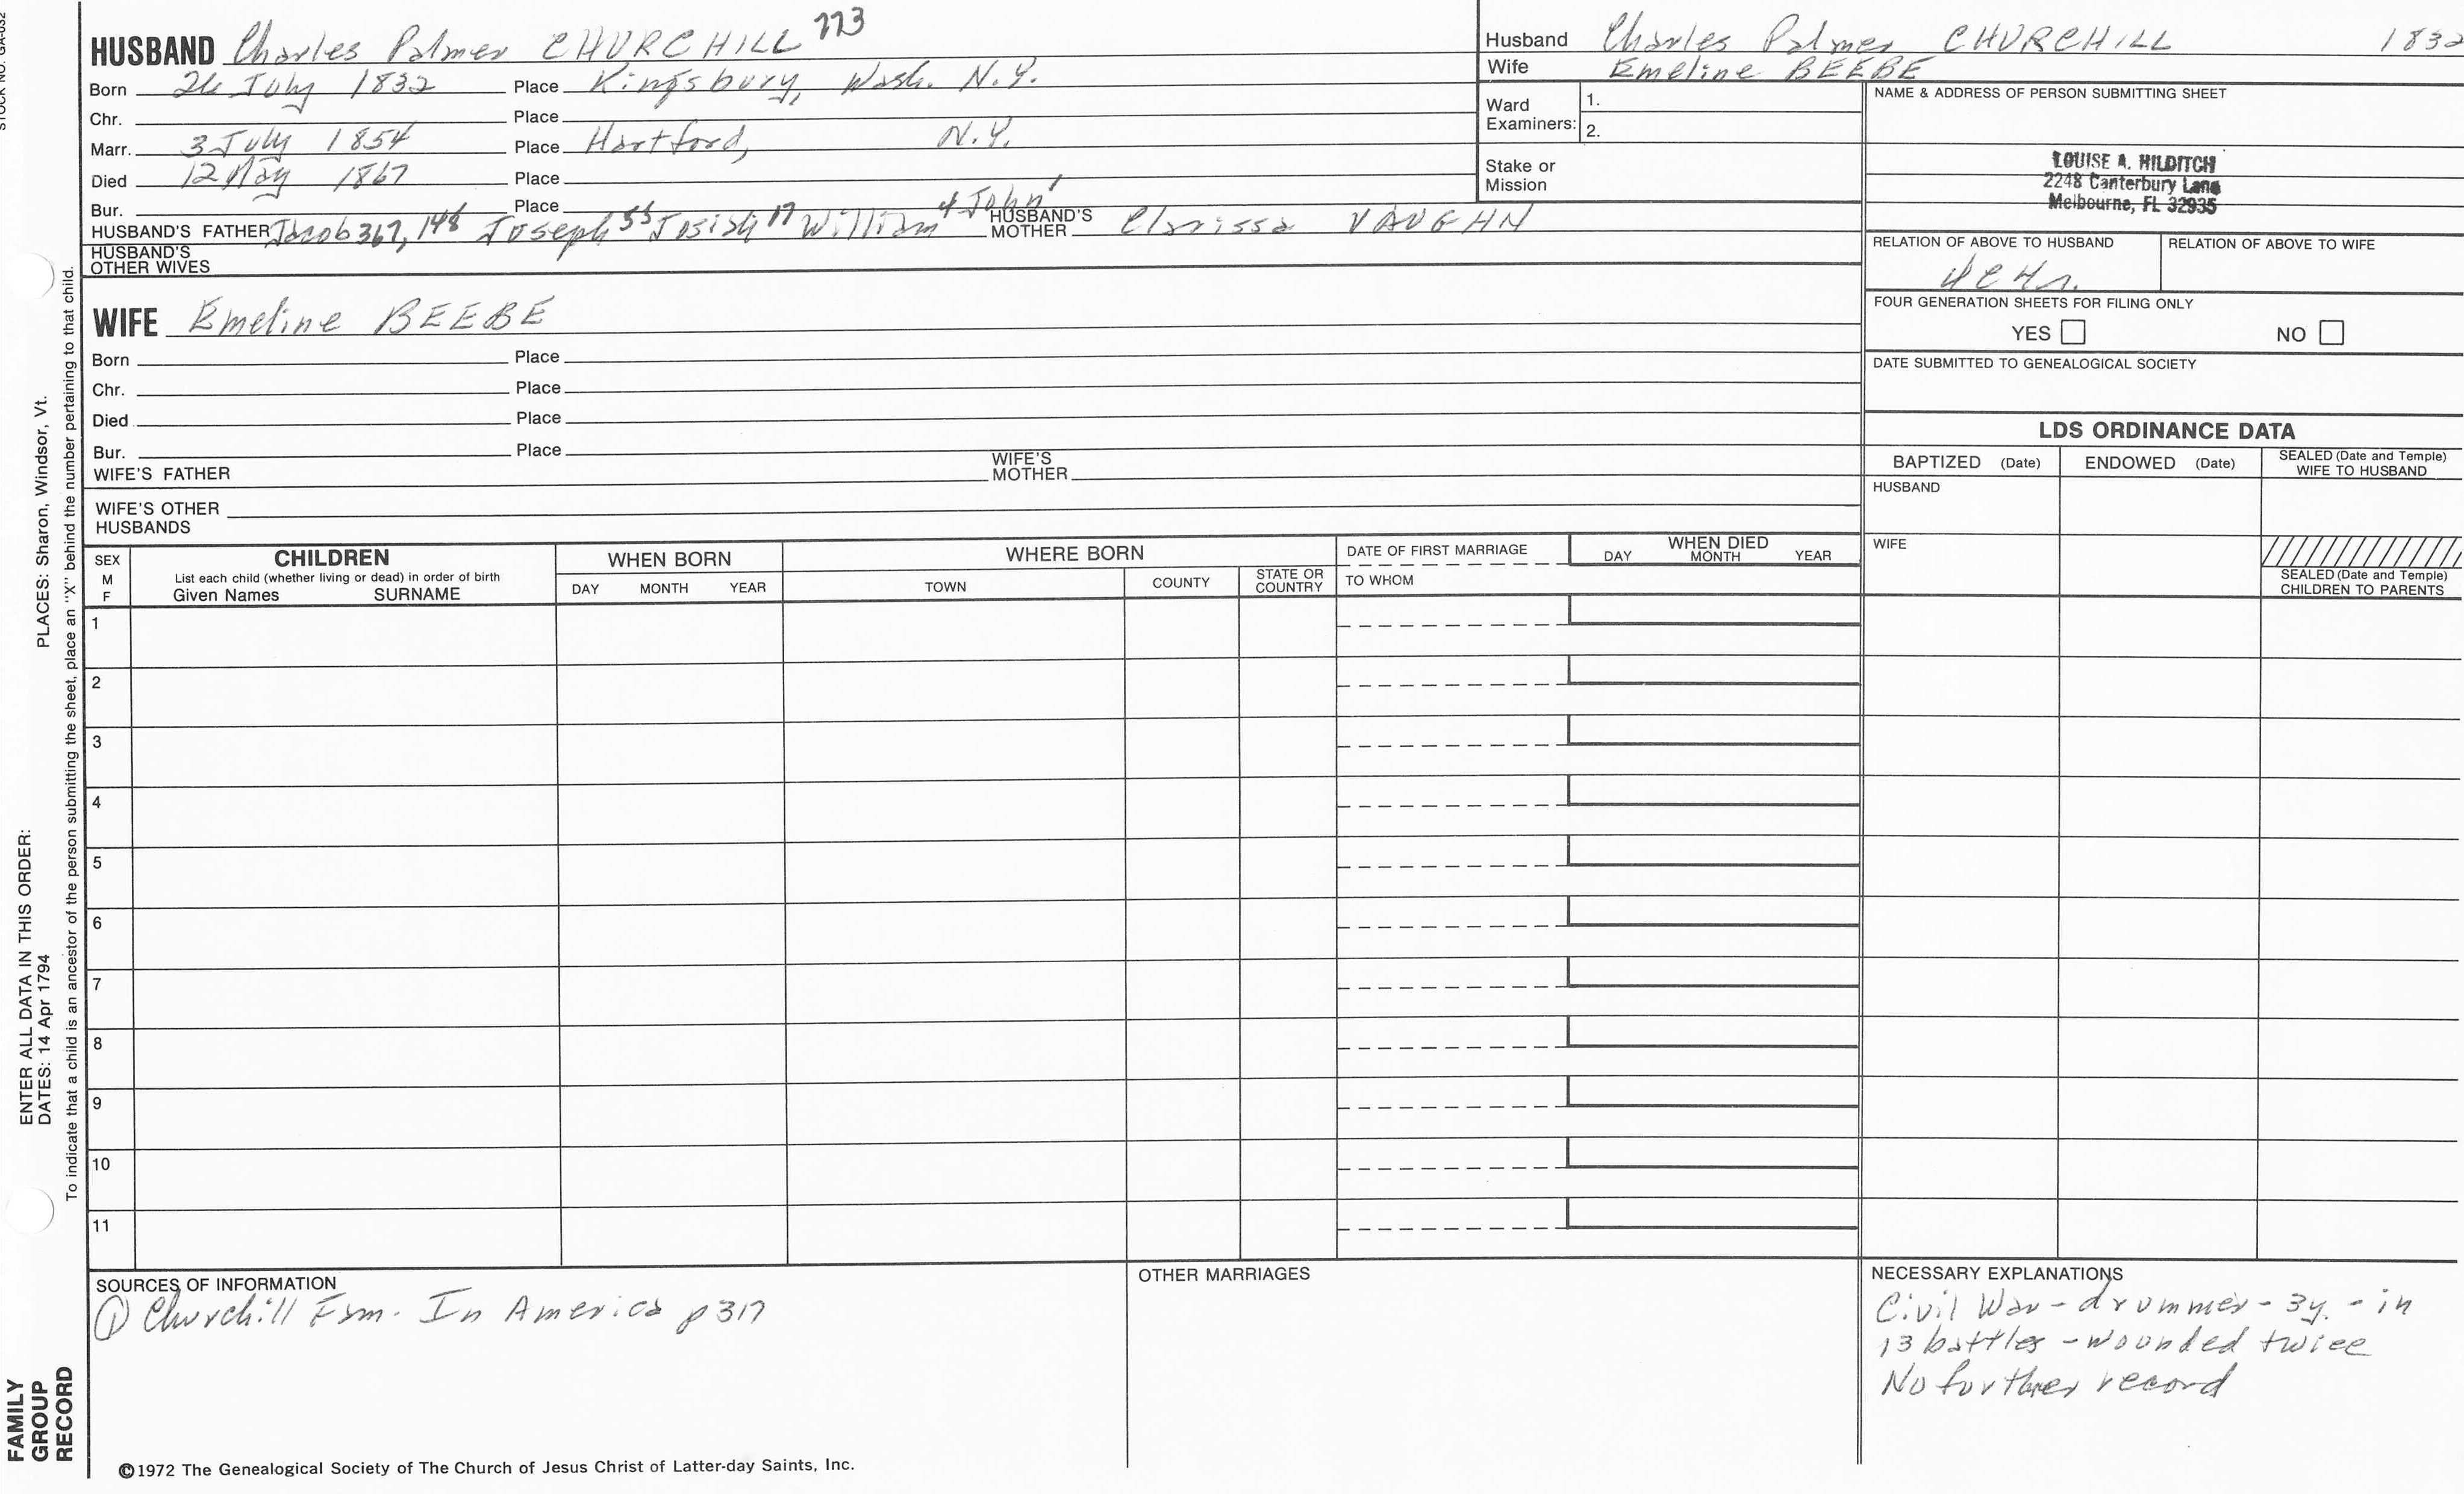 STOCK NO. GA-032
HUSBAND Charles Palmer CHURCHILL 773
Born 26 July 1832 Place Kingsbury, Wash. N.Y.
Chr. Place
Marr. 3 July 1854 Place Hartford, N.Y.
Died 12 May 1867 Place
Bur. Place
HUSBAND'S FATHER Jacob 367, 148 Joseph 55 Josiah 17 William 4 John 1 HUSBAND'S MOTHER Clarissa VAUGHN
HUSBAND'S OTHER WIVES
WIFE Emeline BEEBE
Born Place
Chr. Place
Died Place
Bur. Place
WIFE'S FATHER WIFE'S MOTHER
WIFE'S OTHER
HUSBANDS
Husband Charles Palmer CHURCHILL 1832
Wife Emeline BEEBE
Ward Examiners: 1.
2.
Stake or
Mission
NAME & ADDRESS OF PERSON SUBMITTING SHEET
LOUISE A. HILDITCH
2248 Canterbury Lane
Melbourne, FL 32935
RELATION OF ABOVE TO HUSBAND RELATION OF ABOVE TO WIFE
FOUR GENERATION SHEETS FOR FILING ONLY
YES NO
DATE SUBMITTED TO GENEALOGICAL SOCIETY
LDS ORDINANCE DATA
BAPTIZED (Date) ENDOWED (Date) SEALED (Date and Temple) WIFE TO HUSBAND
HUSBAND
WIFE
SEALED (Date and Temple)
CHILDREN TO PARENTS
SEX M F
CHILDREN
List each child (whether living or dead) in order of birth
Given Names SURNAME
WHEN BORN
DAY MONTH YEAR
WHERE BORN
TOWN COUNTY STATE OR COUNTRY
DATE OF FIRST MARRIAGE
TO WHOM
WHEN DIED
DAY MONTH YEAR
1
2
3
4
5
6
7
8
9
10
11
SOURCES OF INFORMATION
① Churchill Fam. In America p 317
OTHER MARRIAGES
NECESSARY EXPLANATIONS
Civil War - drummer - 3y. - in
13 battles - wounded twice
No further record
©1972 The Genealogical Society of The Church of Jesus Christ of Latter-day Saints, Inc.
ENTER ALL DATA IN THIS ORDER:
DATES: 14 Apr 1794 PLACES: Sharon, Windsor, Vt.
To indicate that a child is an ancestor of the person submitting the sheet, place an "X" behind the number pertaining to that child.
FAMILY
GROUP
RECORD